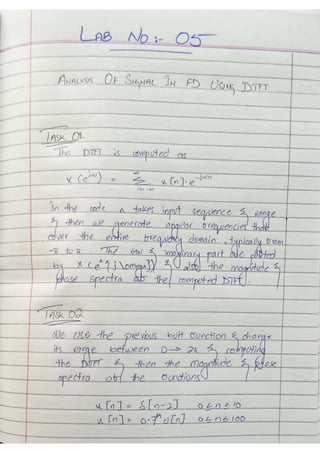 LAB NO:- 05
ANALYSIS OF SIGNAL IN FD USING DTFT
TASK 01
The DTFT is computed as
x(e^jω) = ∞ Σ n=-∞ x[n]·e^-jωn
In the code a takes input sequence & range
& then we generate angular frequencies that
cover the entire frequency domain, typically from
-π to π. The real & imaginary part are plotted
by X(e^{j\omega}) & also the magnitude &
phase spectra of the computed DTFT.
TASK 02
We use the previous built function & change
its range between 0→2π & computing
the DTFT & then the magnitude & phase
spectra of the functions
x[n] = δ[n-2] 0≤n≤10
x[n] = 0.7^n u[n] 0≤n≤100